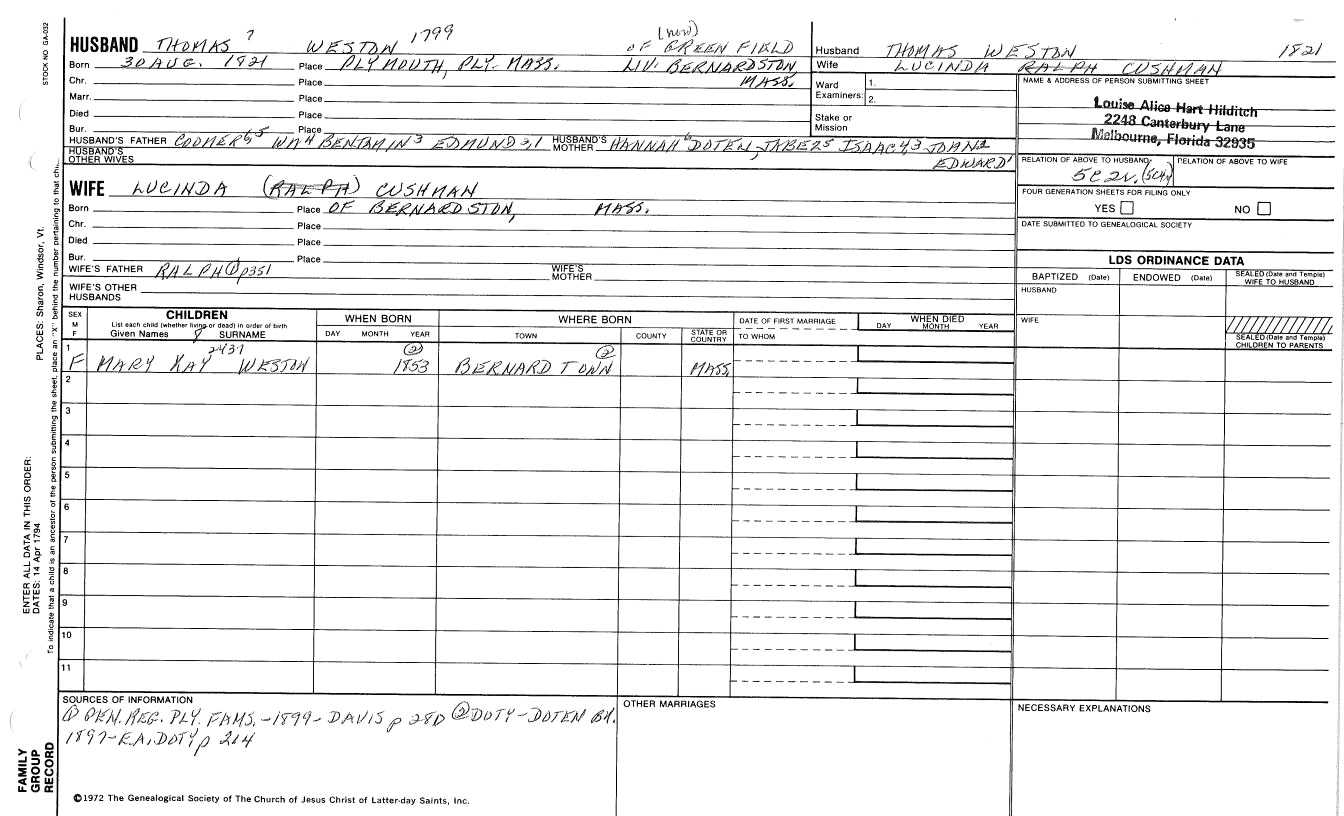 STOCK NO GA-032
HUSBAND THOMAS 7 WESTON 1799 (now) OF GREENFIELD
Born 30 AUG. 1821 Place PLYMOUTH, PLY. MASS. LIV. BERNARDSTON
Chr. Place MASS.
Marr. Place
Died Place
Bur. Place
HUSBAND'S FATHER COOMER 6,5 WM 4 BENJAMIN 3 EDMUND 2,1 HUSBAND'S MOTHER HANNAH 6 DOTEN, JABEZ 5 ISAAC 4,3 JOHN 2
HUSBAND'S OTHER WIVES EDWARD 1
WIFE LUCINDA (RALPH) CUSHMAN
Born Place OF BERNARDSTON, MASS.
Chr. Place
Died Place
Bur. Place
WIFE'S FATHER RALPH ① p351 WIFE'S MOTHER
WIFE'S OTHER HUSBANDS
Husband THOMAS WESTON 1821
Wife LUCINDA RALPH CUSHMAN
Ward Examiners: 1.
2.
Stake or Mission
NAME & ADDRESS OF PERSON SUBMITTING SHEET
Louise Alice Hart Hilditch
2248 Canterbury Lane
Melbourne, Florida 32935
RELATION OF ABOVE TO HUSBAND: RELATION OF ABOVE TO WIFE
5C2R
FOUR GENERATION SHEETS FOR FILING ONLY
YES NO
DATE SUBMITTED TO GENEALOGICAL SOCIETY
LDS ORDINANCE DATA
BAPTIZED (Date) ENDOWED (Date) SEALED (Date and Temple) WIFE TO HUSBAND
HUSBAND
WIFE
SEALED (Date and Temple) CHILDREN TO PARENTS
SEX M F CHILDREN WHEN BORN WHERE BORN DATE OF FIRST MARRIAGE WHEN DIED
List each child (whether living or dead) in order of birth
Given Names 8 SURNAME DAY MONTH YEAR TOWN COUNTY STATE OR COUNTRY TO WHOM DAY MONTH YEAR
2437 ② ②
1 F MARY KAY WESTON 1853 BERNARD TOWN MASS.
2
3
4
5
6
7
8
9
10
11
SOURCES OF INFORMATION
① GEN. REG. PLY. FAMS. - 1899 - DAVIS p 280 ② DOTY-DOTEN BK.
1897 - E.A. DOTY p 264
OTHER MARRIAGES
NECESSARY EXPLANATIONS
©1972 The Genealogical Society of The Church of Jesus Christ of Latter-day Saints, Inc.
FAMILY
GROUP
RECORD
ENTER ALL DATA IN THIS ORDER:
DATES: 14 Apr 1794
PLACES: Sharon, Windsor, Vt.
To indicate that a child is an ancestor of the person submitting the sheet, place an "X" behind the number pertaining to that